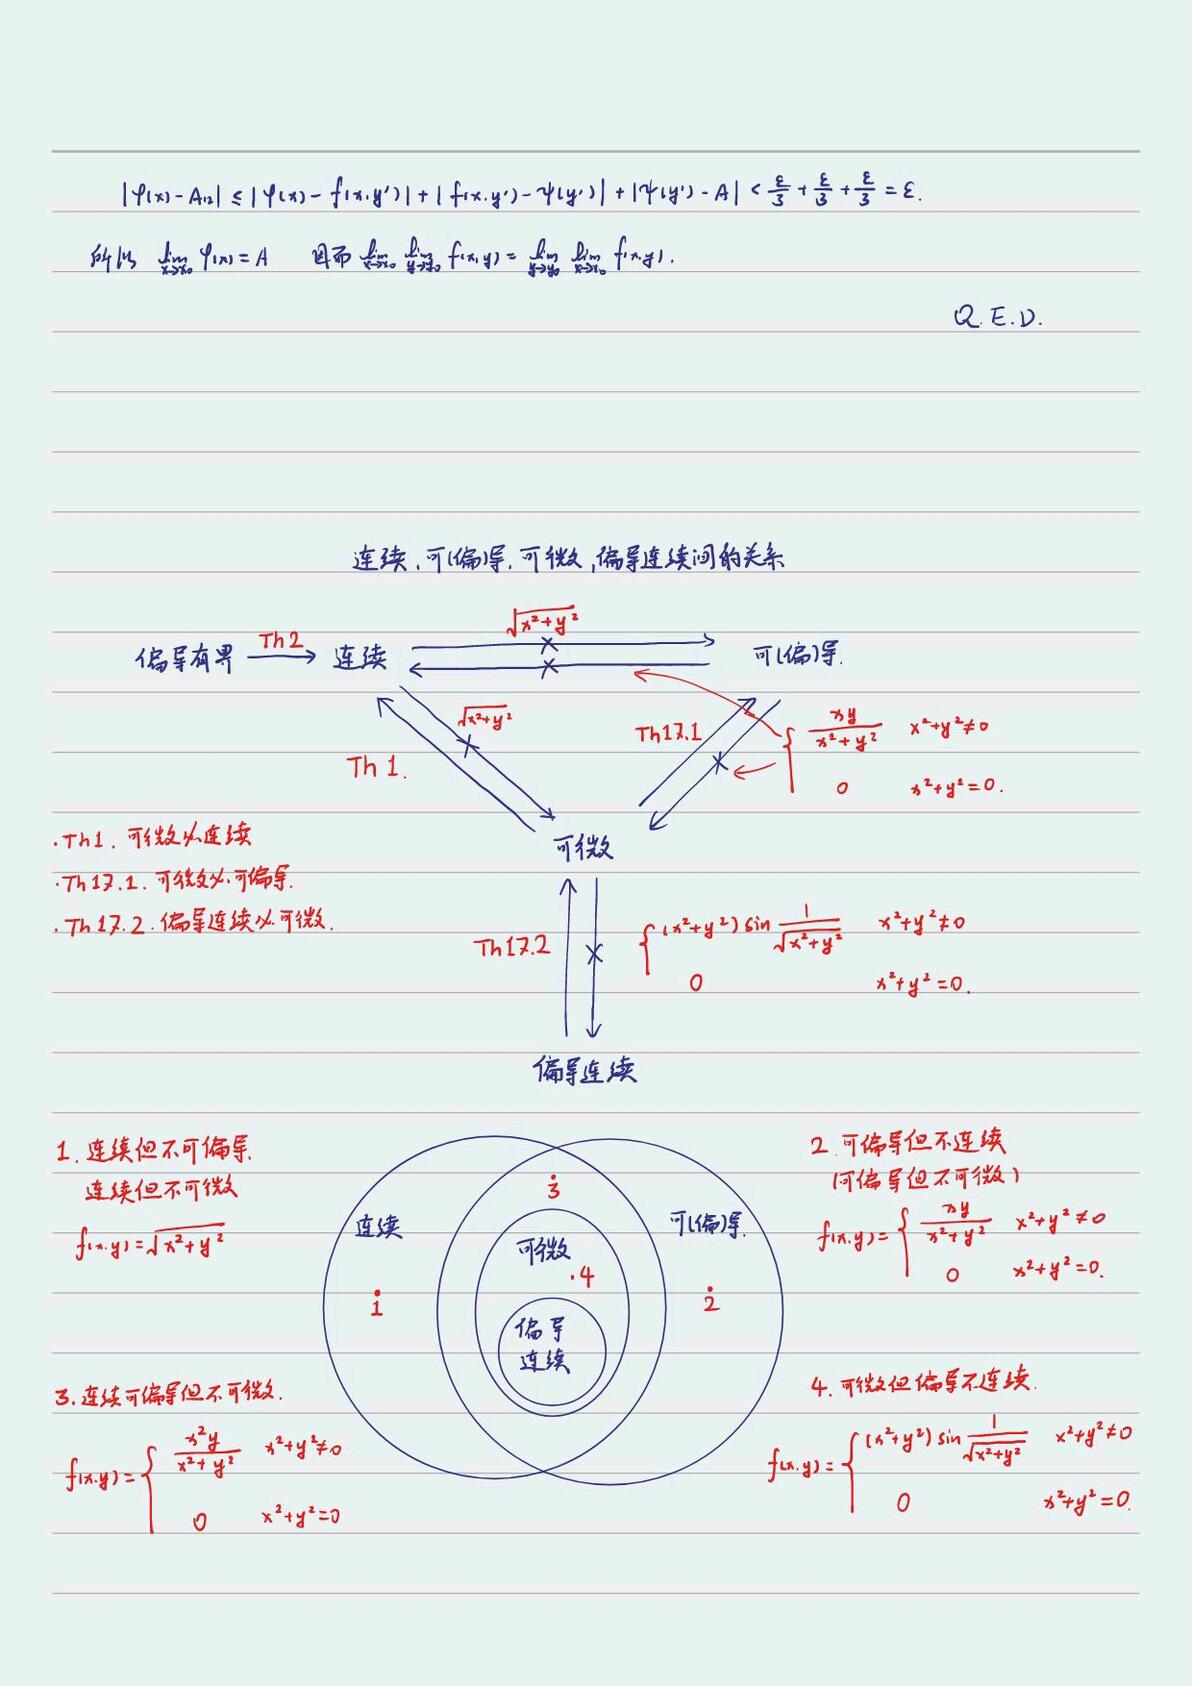 |φ(x)-A₁₂| ≤ |φ(x)-f(x,y')| + |f(x,y')-ψ(y')| + |ψ(y')-A| < ε/3 + ε/3 + ε/3 = ε.
所以 lim_{x→x₀} φ(x) = A 因而 lim_{x→x₀} lim_{y→y₀} f(x,y) = lim_{y→y₀} lim_{x→x₀} f(x,y).
Q.E.D.
连续,可(偏)导,可微,偏导连续间的关系
√(x²+y²)
偏导有界 Th2 连续 可(偏)导.
√(x²+y²) Th17.1 { xy/(x²+y²) x²+y²≠0
Th1. 0 x²+y²=0.
可微
·Th1. 可微必连续
·Th17.1. 可微必可偏导.
·Th17.2. 偏导连续必可微.
Th17.2 { (x²+y²) sin 1/√(x²+y²) x²+y²≠0
0 x²+y²=0.
偏导连续
1. 连续但不可偏导.
连续但不可微
f(x,y)=√(x²+y²)
2. 可偏导但不连续
(可偏导但不可微)
f(x,y)= { xy/(x²+y²) x²+y²≠0
0 x²+y²=0.
3
连续 可微 可(偏)导.
·4
1 2
偏导
连续
3. 连续可偏导但不可微.
f(x,y)= { x²y/(x²+y²) x²+y²≠0
0 x²+y²=0
4. 可微但偏导不连续.
f(x,y)= { (x²+y²) sin 1/√(x²+y²) x²+y²≠0
0 x²+y²=0.